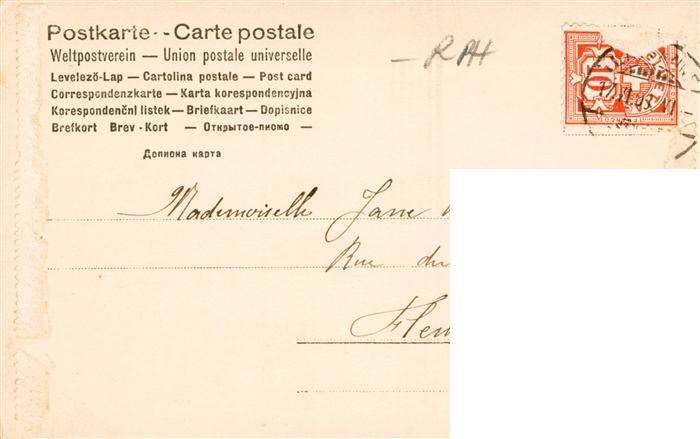 Postkarte - Carte postale
Weltpostverein — Union postale universelle
Levelező-Lap — Cartolina postale — Post card
Correspondenzkarte — Karta korespondencyjna
Korespondenční listek — Briefkaart — Dopisnice
Brefkort Brev-Kort — Открытое-писмо —
Дописна карта
Mademoiselle Jane
Rue du
10